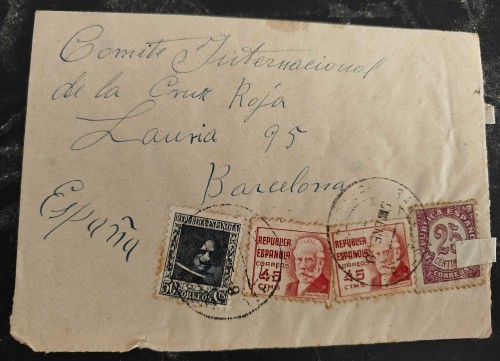 Comité Internacional
de la Cruz Roja
Lauria 95
Barcelona
España
REPUBLICA ESPAÑOLA
50 CORREOS CTS
REPUBLICA
ESPAÑOLA
CORREOS
45
CTMS
REPUBLICA
ESPAÑOLA
CORREOS
45
CTMS
REPUBLICA ESPAÑ
25
CENTIM
CORREOS